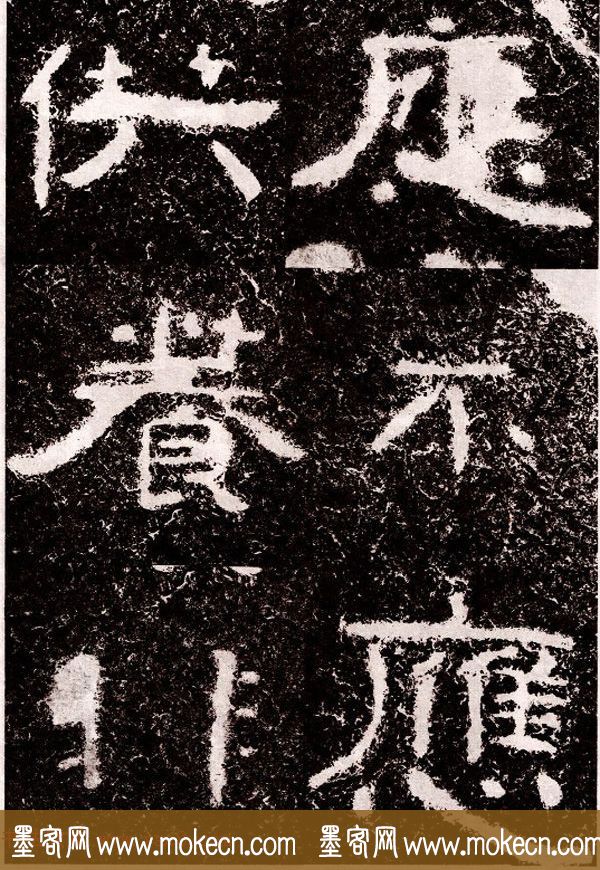 不應
供養非
墨客网 www.mokecn.com 墨客网 www.mokecn.com